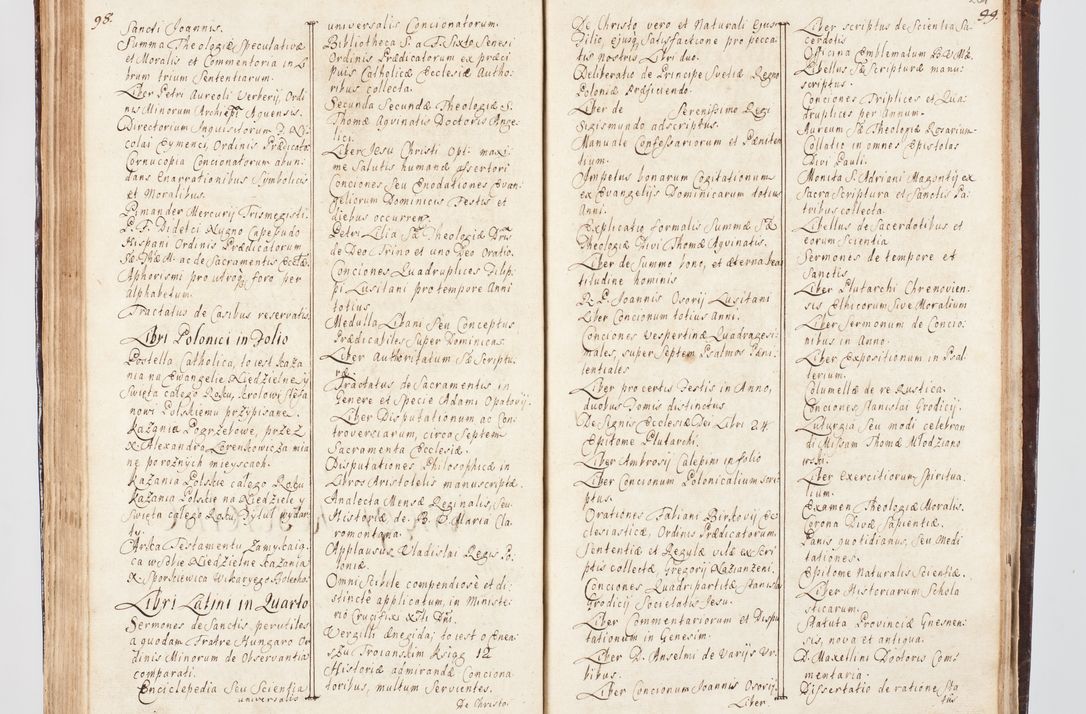 98.
Sancti Joannis.
Summa Theologiæ Speculativæ
et Moralis et Commentoria in Li
brum trium Sententiarum.
Liber Petri Aureoli Verberij, Ordi
nis Minorum Archiepi Aquensis.
Directorium Inquisitorum P. Ny
colai Eymenci, Ordinis Prædicator
Cornucopia Concionatorum abun
dans Enarrationibus Symbolicis
et Moralibus.
Pimander Mercurij Trismegisti.
P. F. Didetci Nugno Capepudo
Hispani Ordinis Prædicatorum
Sæ Thæ M. ac de Sacramentis Ecclæ.
Aphorismi pro utroq foro per
Alphabetum.
Tractatus de Casibus reservatis.
Libri Polonici in Folio
Postella Catholica, to iest Kaza
nia na Ewangelie Niedzielne y
Swięta całego Roku, Krolowi Stefa
nowi Polskiemu przypisane.
Kazania Pogrzebowe, przez
X. Alexandra Lorenkowicza mia
ne porożnych mieyscach.
Kazania Polskie całego Roku
Kazania Polskie na Niedziele y
Swięta całego Roku, Tytuł wydar
ty.
Arka Testamentu Zamykaią
ca w sobie Niedzielne Kazania
X. Sporkiewica Wikaryego
Libri Latini in Quarto
Sermones de Sanctis perutiles
a quodam Fratre Hungaro Or
dinis Minorum de Observantia
comparati.
Enciclepedia Seu Scientia
universalis
universalis Concionatorum.
Bibliotheca S. a F. Sixto Senesi
Ordinis Prædicatorum ex præci
puis Catholicæ Ecclesiæ Autho
ribus collecta.
Secunda Secundæ Theologiæ S.
Thomæ Aqvinatis Doctoris Ange
lici.
Liber Jesu Christi Opt: maxi
me Salutis humanæ assertori
Conciones Seu Enodationes Evan
geliorum Dominicis Festis et
diebus occurren.
Petri Lilia Sæ Theologiæ Dris
de Deo Trino et uno Deo Oratio.
Conciones Quadruplices Filip
pi Lusitani pro tempore Anni
totius
Medulla Libani Seu Conceptus
Prædicabiles Super Dominicas.
Liber Authoritatum Sæ Scriptu
ræ
Tractatus de Sacramentis in
Genere et Specie Adami Opatovij.
Liber Disputationum ac Con
troversiarum, circa Septem
Sacramenta Ecclesiæ.
Disputationes Philosophicæ in
Libros Aristotelis manuscriptæ.
Analecta Mensæ Reginalis, Seu
Historiæ de B. V. Maria Cla
romontana.
Applausus Vladislai Regis Po
loniæ.
Omni Scibile compendiose et di
stinctè applicatum, in Ministe
rio Crucifixi Xti Dni.
Vergilij Ænegida, to iest o Ænea
szu Troianskim Ksiąg 12
Historiæ admirandæ Conciona
toribus, multum Servientes.
De Christo
De Christo vero et Naturali Ejus
Filio, ejusq Satisfactione pro pecca
tis nostris Libri duo.
Deliberatio de Principe Svetiæ Regno
Poloniæ Præficiendo.
Liber de Serenissimo Regi
Sigismundo adscriptus.
Manuale Confessariorum et Pæniten
tium.
Impetus bonarum Cogitationum
ex Evangelijs Dominicarum totius
Anni.
Explicatio formalis Summæ Sæ
Theologiæ Divi Thomæ Aqvinatis.
Liber de Summo bono, et æterna bea
titudine hominis
R. P. Joannis Osorij Lusitani
Liber Concionum totius Anni.
Conciones Vespertinæ Quadragesi
males, super Septem Psalmos Pæni
tentiales
Liber pro certis Festis in Anno,
duobus Tomis distinctus
De Signis Ecclesiæ Dei Libri 24
Epitome Plutarchi.
Liber Ambrosij Calepini in folio
Liber Concionum Polonicalium scri
ptus.
Orationes Fabiani Birkovij Ec
clesiasticæ, Ordinis Prædicatorum.
Sententiæ et Regulæ vitæ ex Scri
ptis collectæ, Gregorij Nazianzeni.
Conciones Quadripartitæ Stanislai
Grodicij Societatis Jesu.
Liber Commentariorum et Dispu
tationum in Genesim.
Liber D. Anselmi de Varijs Vr
bibus.
Liber Concionum Joannis Osorij.
Liber.
99.
Liber scriptus de Scientia Sa
cerdotis
Officina Emblematum
Libellus Sæ Scripturæ manu
scriptus.
Conciones Triplices et Qua
druplices per Annum.
Aureum Sæ Theologiæ Rosarium
Collatio in omnes Epistolas
Divi Pauli.
Monita S. Adriani Magontij ex
Sacra Scriptura et Sanctis Pa
tribus collecta.
Libellus de Sacerdotibus et
eorum Scientia
Sermones de tempore et
Sanctis
Liber Plutarchi Chrenovien
sis Ethicorum, Sive Moralium
Liber Sermonum de Concio
nibus in Anno.
Liber Expositionum in Psal
terium.
Columellæ de re Rustica.
Conciones Stanislai Grodicij.
Luturgia Seu modi celebran
di Missam Thomæ Młodziano
wski.
Liber exercitiorum Spiritua
lium.
Examen Theologiæ Moralis.
Corona Divæ Sapientiæ.
Panis quotidianus, Seu Medi
tationes.
Epitome Naturalis Scientiæ.
Liber Historiarum Schola
sticarum.
Statuta Provinciæ Gnesnen
sis, nova et antiqua.
D. Maxetlini Doctoris Com
mentaria.
Dissertatio de ratione Sta
tus